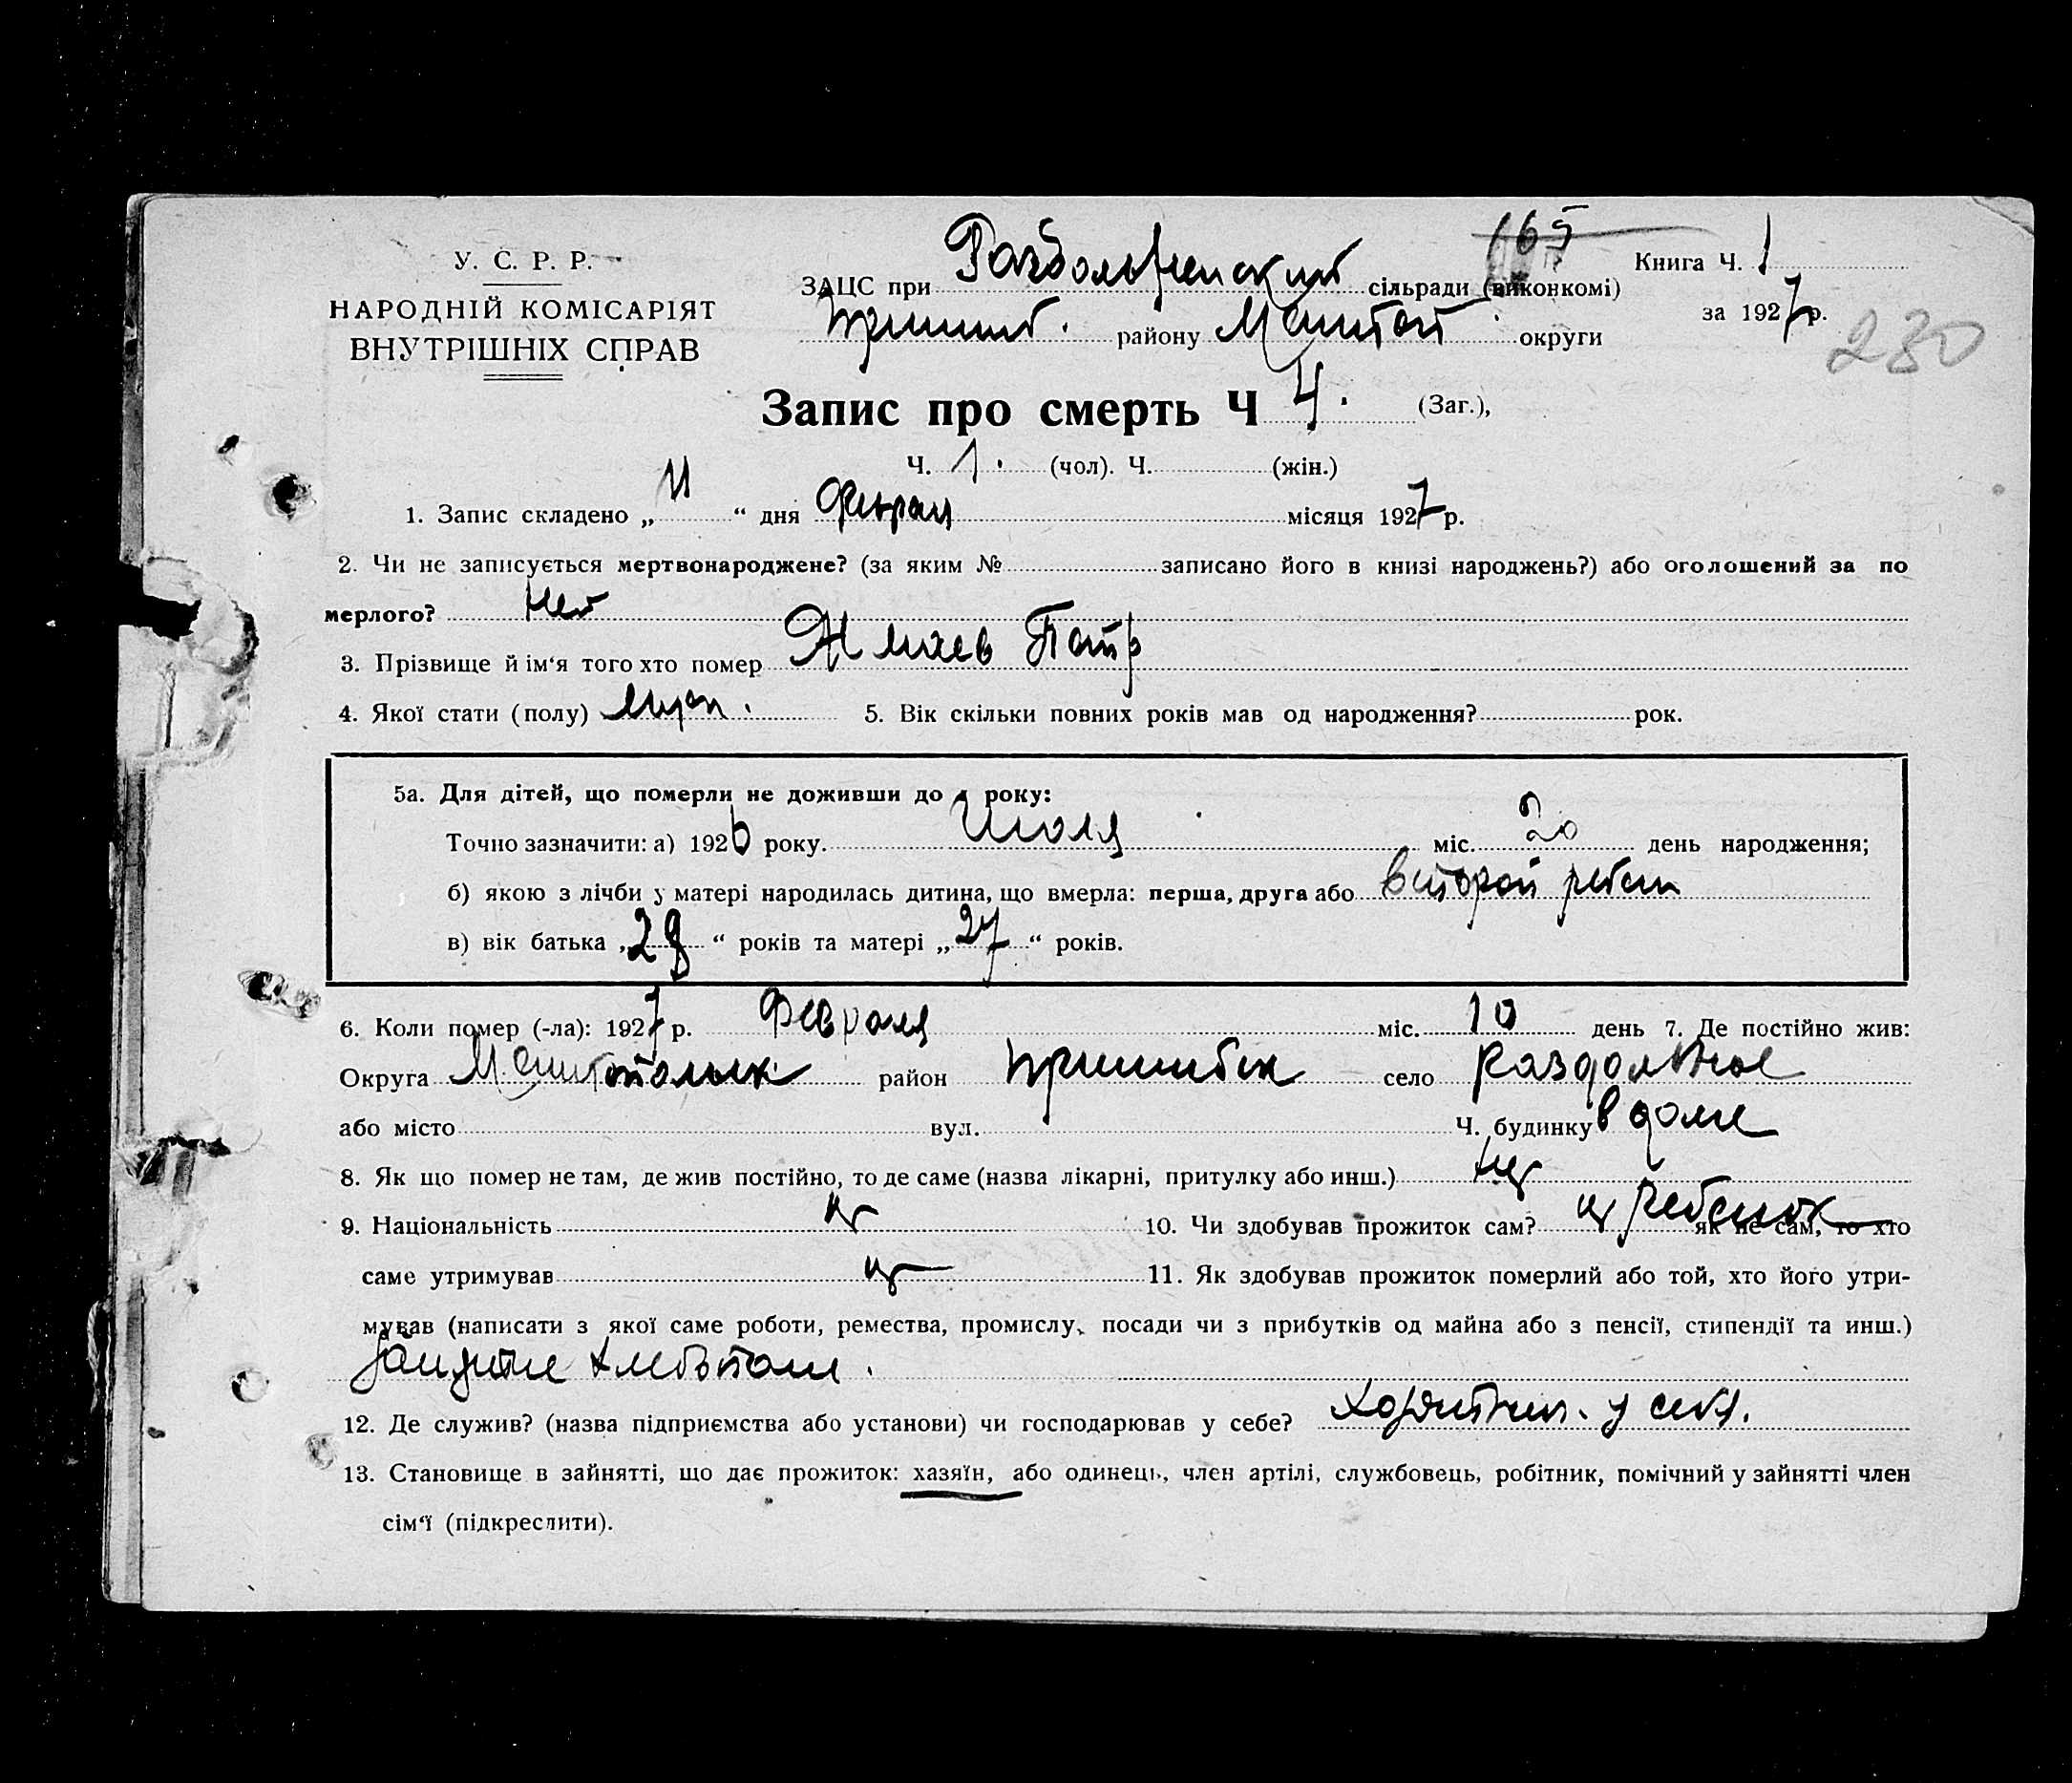 165
У. С. Р. Р.
НАРОДНІЙ КОМІСАРІЯТ
ВНУТРІШНІХ СПРАВ
ЗАЦС при Раздольненский сільради (виконкомі)
Пришиб. району Мелитоп округи
Книга Ч. 1
за 1927 р.
230
Запис про смерть Ч 4. (Заг.),
Ч. 1. (чол). Ч. (жін.)
1. Запис складено „ 11 “ дня Феврал місяця 1927 р.
2. Чи не записується мертвонароджене? (за яким № записано його в книзі народжень?) або оголошений за по
мерлого? Нет
3. Прізвище й ім‘я того хто помер Петр
4. Якої стати (полу) муж. 5. Вік скільки повних років мав од народження? рок.
5а. Для дітей, що померли не доживши до 1 року:
Точно зазначити: а) 1926 року. Июля міс. 20 день народження;
б) якою з лічби у матері народилась дитина, що вмерла: перша, друга або второй ребен
в) вік батька „ 28 “ років та матері „ 27 “ років.
6. Коли помер (-ла): 1927 р. Февраля міс. 10 день 7. Де постійно жив:
Округа Мелитопольск район Пришибск село Раздольное
або місто вул. Ч. будинку в доме
8. Як що помер не там, де жив постійно, то де саме (назва лікарні, притулку або инш.) нет
9. Національність 10. Чи здобував прожиток сам? ребенок як не сам, то хто
саме утримував 11. Як здобував прожиток померлий або той, хто його утри-
мував (написати з якої саме роботи, ремества, промислу, посади чи з прибутків од майна або з пенсії, стипендії та инш.)
12. Де служив? (назва підприємства або установи) чи господарював у себе? у себя.
13. Становище в зайнятті, що дає прожиток: хазяїн, або одинець, член артілі, службовець, робітник, помічний у зайнятті член
сім‘ї (підкреслити).